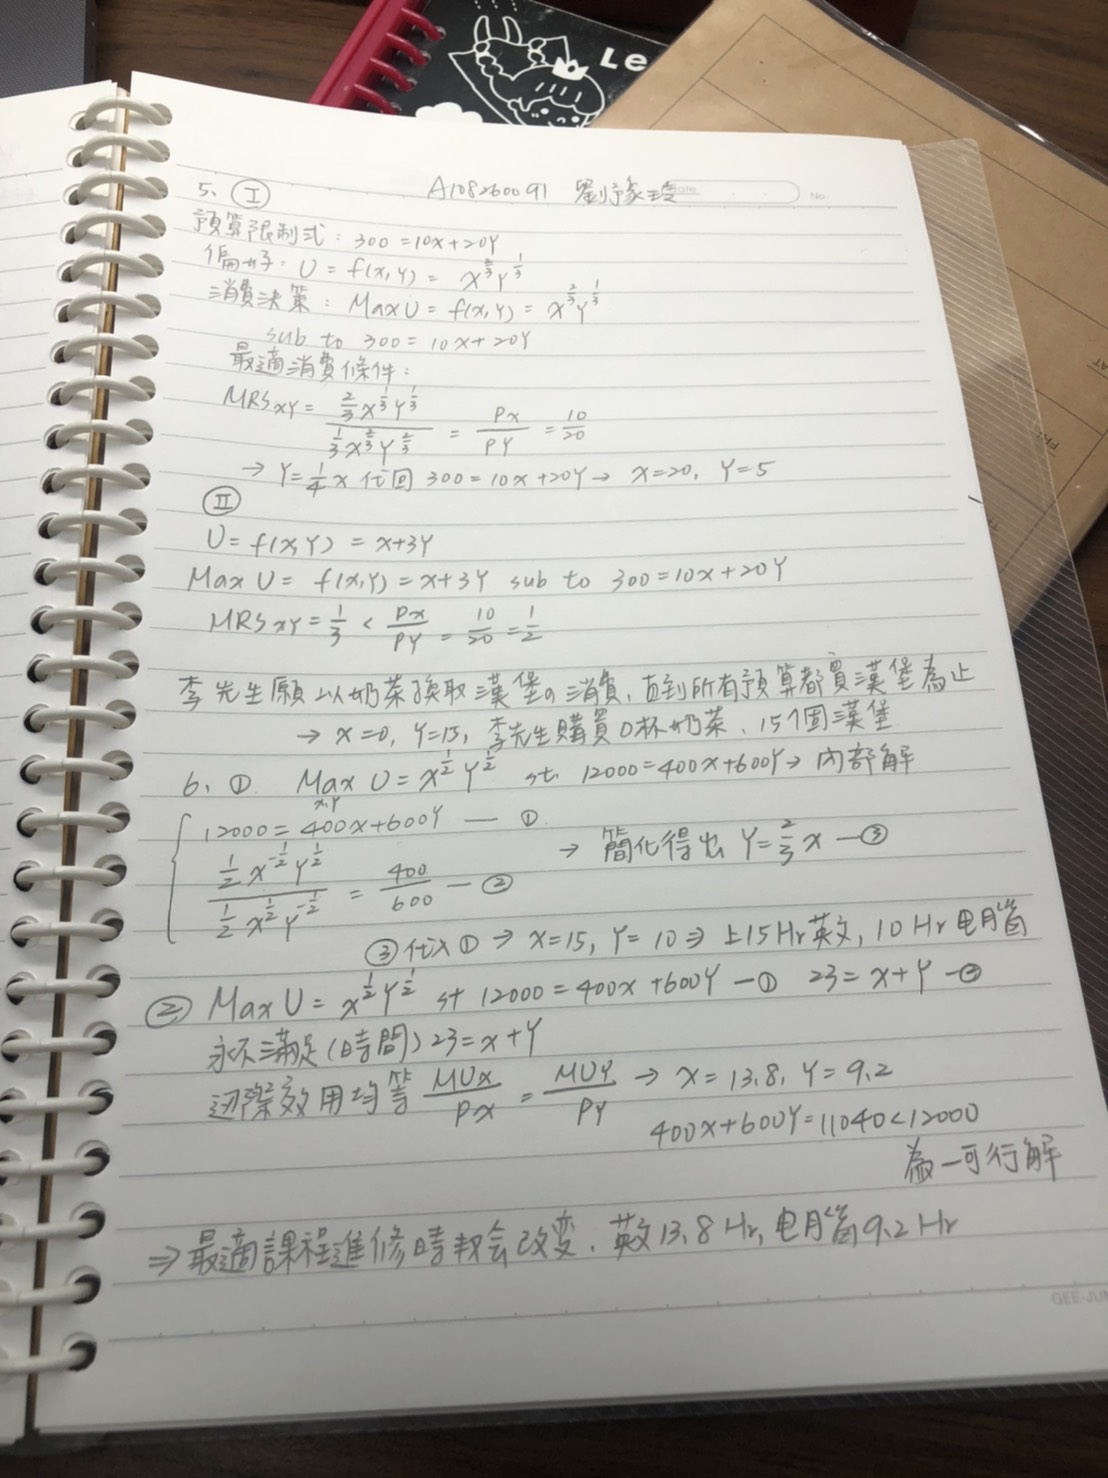 Le
5、Ⓘ A108260091 劉豫瑄
Date No.
預算限制式：300=10x+20Y
偏好：U = f(x,y) = x^{2/3}Y^{1/3}
消費決策：Max U = f(x,Y) = x^{2/3}Y^{1/3}
sub to 300=10x+20Y
最適消費條件：
MRSxy = (2/3 x^{1/3}Y^{1/3})/(1/3 x^{2/3}Y^{2/3}) = Px/PY = 10/20
→ Y=1/4x 代回 300=10x+20Y → x=20, Y=5
Ⅱ
U= f(x,Y) = x+3Y
Max U = f(x,Y) = x+3Y sub to 300=10x+20Y
MRSxy = 1/3 < Px/PY = 10/20 = 1/2
李先生願以奶茶換取漢堡的消費，直到所有預算都買漢堡為止
→ x=0, Y=15, 李先生購買0杯奶茶、15個漢堡
6、① Max U = x^{1/2}Y^{1/2} st. 12000=400x+600Y → 內部解
x,Y
12000=400x+600Y — ①
(1/2 x^{-1/2}Y^{1/2})/(1/2 x^{1/2}Y^{-1/2}) = 400/600 — ② → 簡化得出 Y=2/3x — ③
③代入① → x=15, Y=10 ⇒ 上15Hr英文, 10Hr电腦
② Max U = x^{1/2}Y^{1/2} st 12000=400x+600Y —① 23=x+Y —②
永不滿足(時間) 23=x+Y
邊際效用均等 MUx/Px = MUY/PY → x=13.8, Y=9.2
400x+600Y=11040<12000
為一可行解
⇒ 最適課程進修時數会改变、英文13.8Hr, 电腦9.2Hr